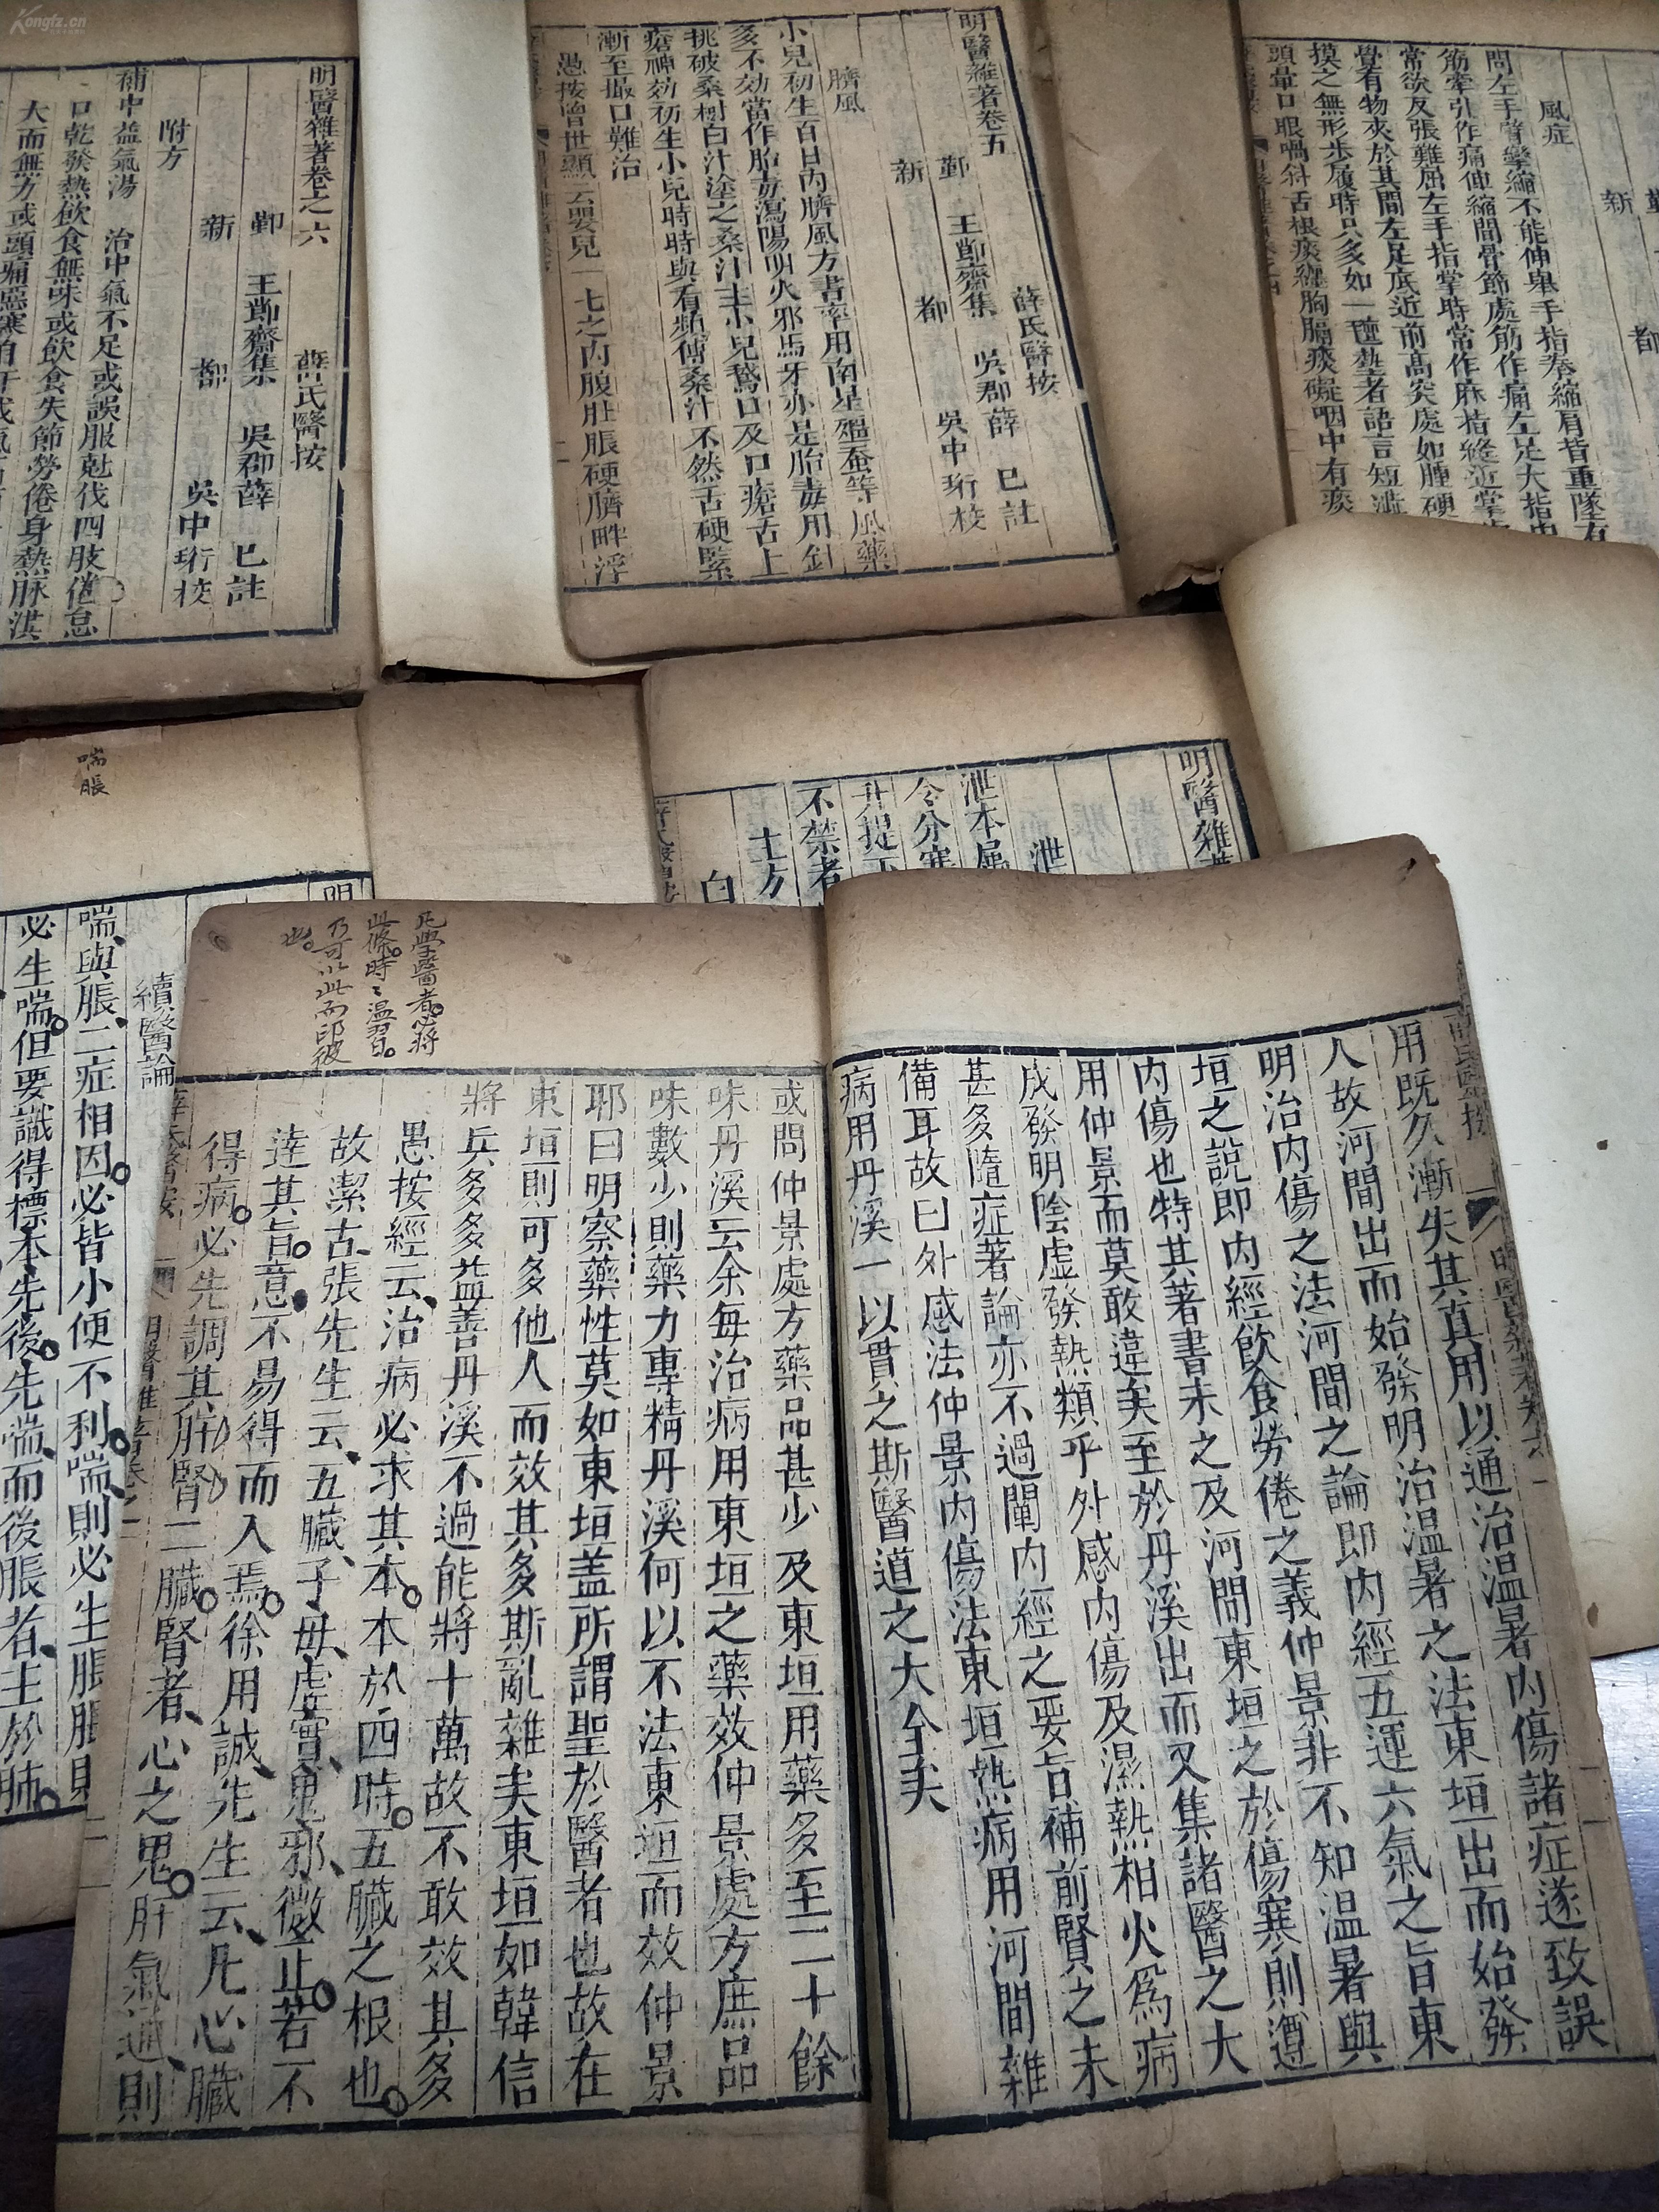 Kongfz.cn
明醫雜著卷之六
薛氏醫按
鄞 王節齋集 吳郡薛 已註
新 都 吳中珩校
附方
補中益氣湯 治中氣不足或誤服尅伐四肢倦怠
口乾發熱飲食無味或飲食失節勞倦身熱脉洪
大而無力或頭痛惡寒自汗或氣
明醫雜著卷五
薛氏醫按
鄞 王節齋集 吳郡薛 已註
新 都 吳中珩校
臍風
小兒初生百日內臍風方書率用南星殭蚕等風藥
多不効當作胎毒瀉陽明火邪馬牙亦是胎毒用針
挑破桑樹白汁塗之桑汁主小兒鵞口及口瘡舌上
瘡神効初生小兒時時與看頻傅桑汁不然舌硬緊
漸至撮口難治
愚按曾世顯云嬰兒一七之內腹肚脹硬臍畔浮
鄞
新 都
風症
問左手臂攣縮不能伸舉手指拳縮肩背重墜有
筋牽引作痛伸縮間骨節處筋作痛左足大指中
常欲反張難屈左手指掌時常作麻指縫近掌
覺有物夾於其間左足底近前高突處如腫硬
摸之無形步履時只多如一
頭暈口眼喎斜舌根痰纏胸膈痰礙咽中有痰
喘脹
明
續醫論
喘與脹二症相因必皆小便不利喘則必生脹脹則
必生喘但要識得標本先後先喘而後脹者主於肺
明醫雜
泄
泄本屬
令分寒
升提下
不禁者
土方
白
用既久漸失其真用以通治温暑內傷諸症遂致誤
人故河間出而始發明治温暑之法東垣出而始發
明治內傷之法河間之論即內經五運六氣之旨東
垣之說即內經飲食勞倦之義仲景非不知温暑與
內傷也特其著書未之及河間東垣之於傷寒則遵
用仲景而莫敢違矣至於丹溪出而又集諸醫之大
成發明陰虛發熱類乎外感內傷及濕熱相火爲病
甚多隨症著論亦不過闡內經之要旨補前賢之未
備耳故曰外感法仲景內傷法東垣熱病用河間雜
病用丹溪一以貫之斯醫道之大全矣
凡學醫者必將
此條時〻温習
乃可以此而印彼
也
或問仲景處方藥品甚少及東垣用藥多至二十餘
味丹溪云余每治病用東垣之藥效仲景處方庶品
味數少則藥力專精丹溪何以不法東垣而效仲景
耶曰明察藥性莫如東垣盖所謂聖於醫者也故在
東垣則可多他人而效其多斯亂雜矣東垣如韓信
將兵多多益善丹溪不過能將十萬故不敢效其多
愚按經云治病必求其本本於四時五臟之根也
故潔古張先生云五臟子母虛實鬼邪微正若不
達其旨意不易得而入焉徐用誠先生云凡心臟
得病必先調其肝腎二臟腎者心之鬼肝氣通則
薛氏醫按
明醫雜著卷之